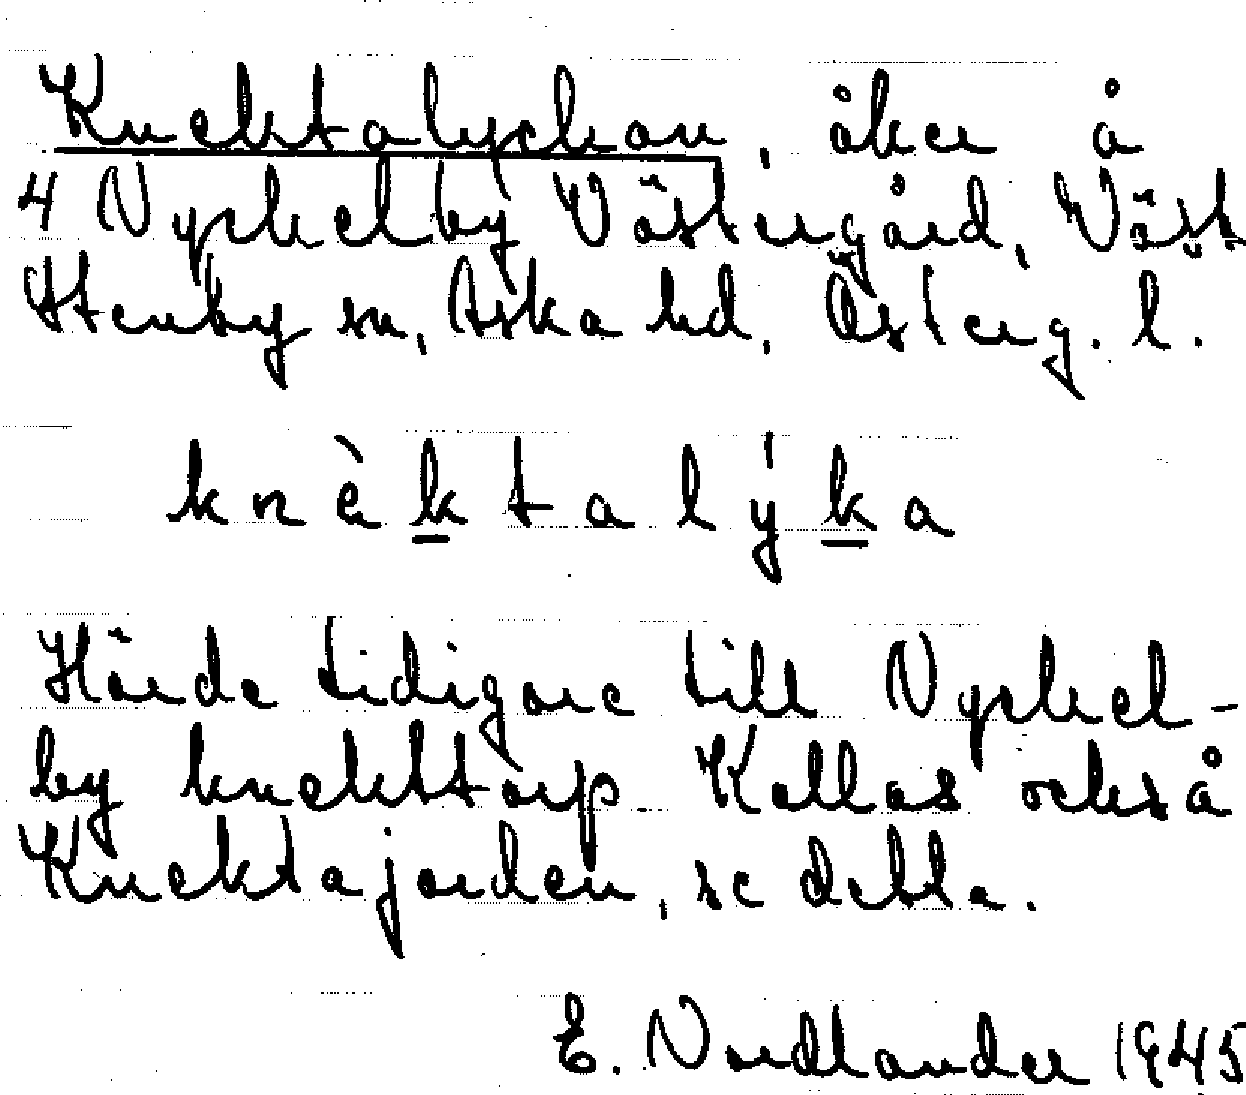 Knektalyckan, åker å
4 Nyckelby Västergård, Väst
Stenby sn, Aska hd, Österg. l.
knè̀ktalýka
Hörde tidigare till Nyckel-
by knekttorp Kallas också
Knektajorden, se detta.
E. Nordlander 1945